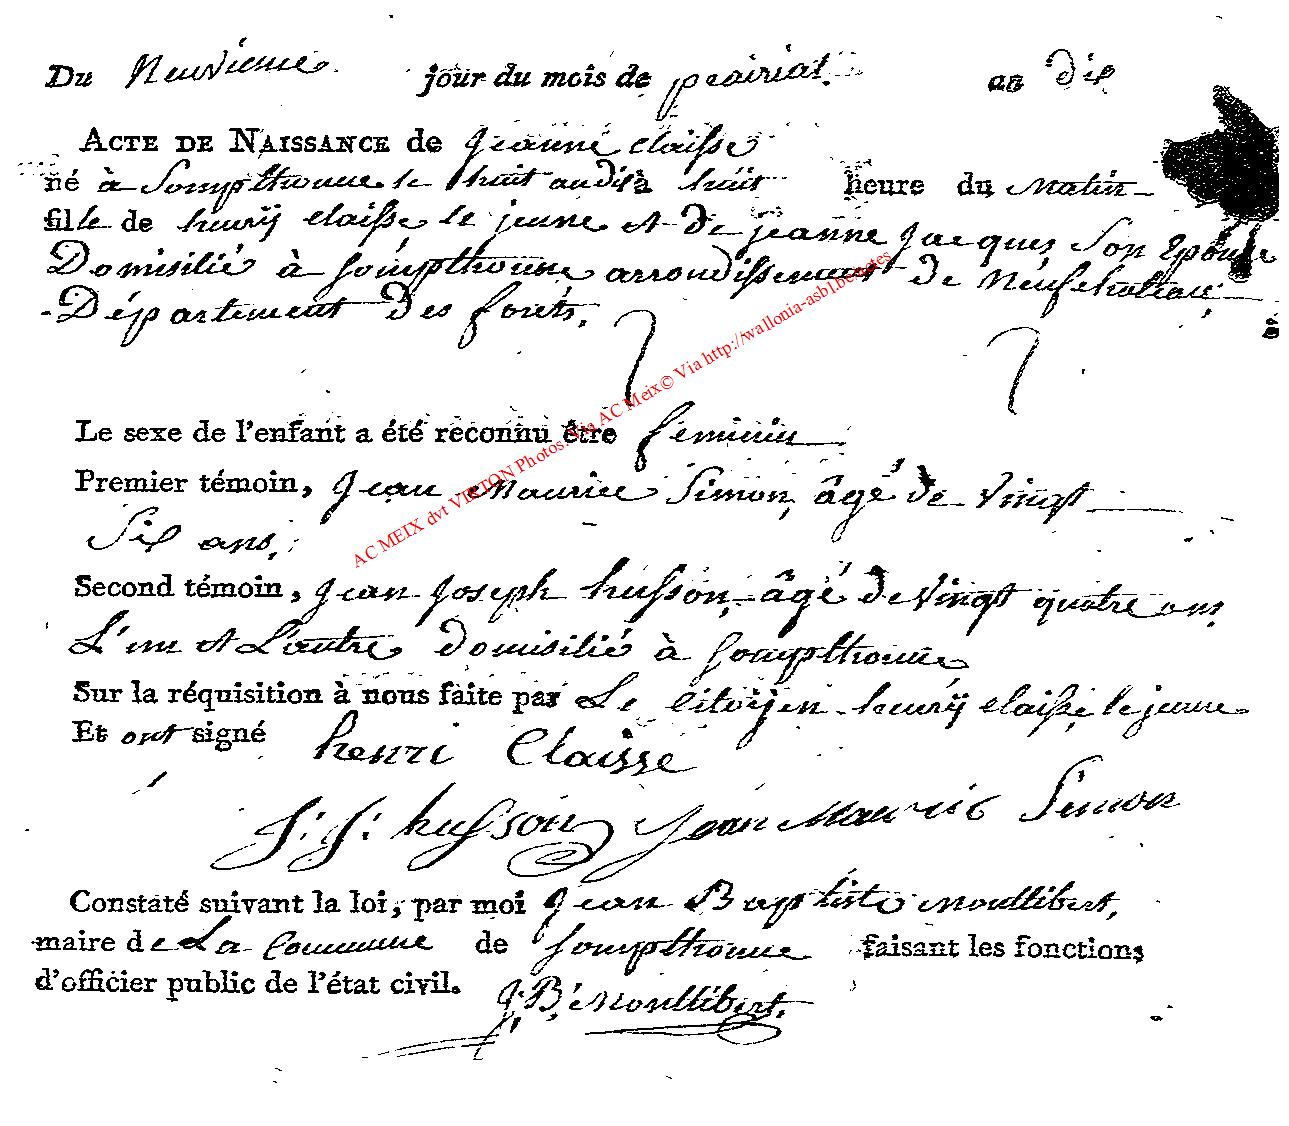 Du Neuvieme jour du mois de prairial an dix
ACTE DE NAISSANCE de Jeanne Claisse
né à Sompthonne le huit audit à huit heure du matin
fille de henrÿ claisse le jeune et de jeanne jacques son epouse
Domisilié à Sompthonne arrondissement de Neufchateau
Département des forêts.
Le sexe de l'enfant a été reconnu être feminin
Premier témoin, Jean Maurice Simon, âgé de vingt
Six ans,
Second témoin, Jean Joseph husson, âgé de vingt quatre ans
L'un et L'autre domisilié à Sompthonne
Sur la réquisition à nous faite par Le citoÿen henrÿ claisse le jeune
Et ont signé henri Claisse
J. J. husson Jean Mauric Simon
Constaté suivant la loi, par moi Jean Baptiste Montlibert,
maire de La Commune de Sompthonne faisant les fonctions
d'officier public de l'état civil. J. B. Montlibert.
AC MEIX dvt VIRTON Photos: Via AC Meix© Via http://wallonia-asbl.be/actes